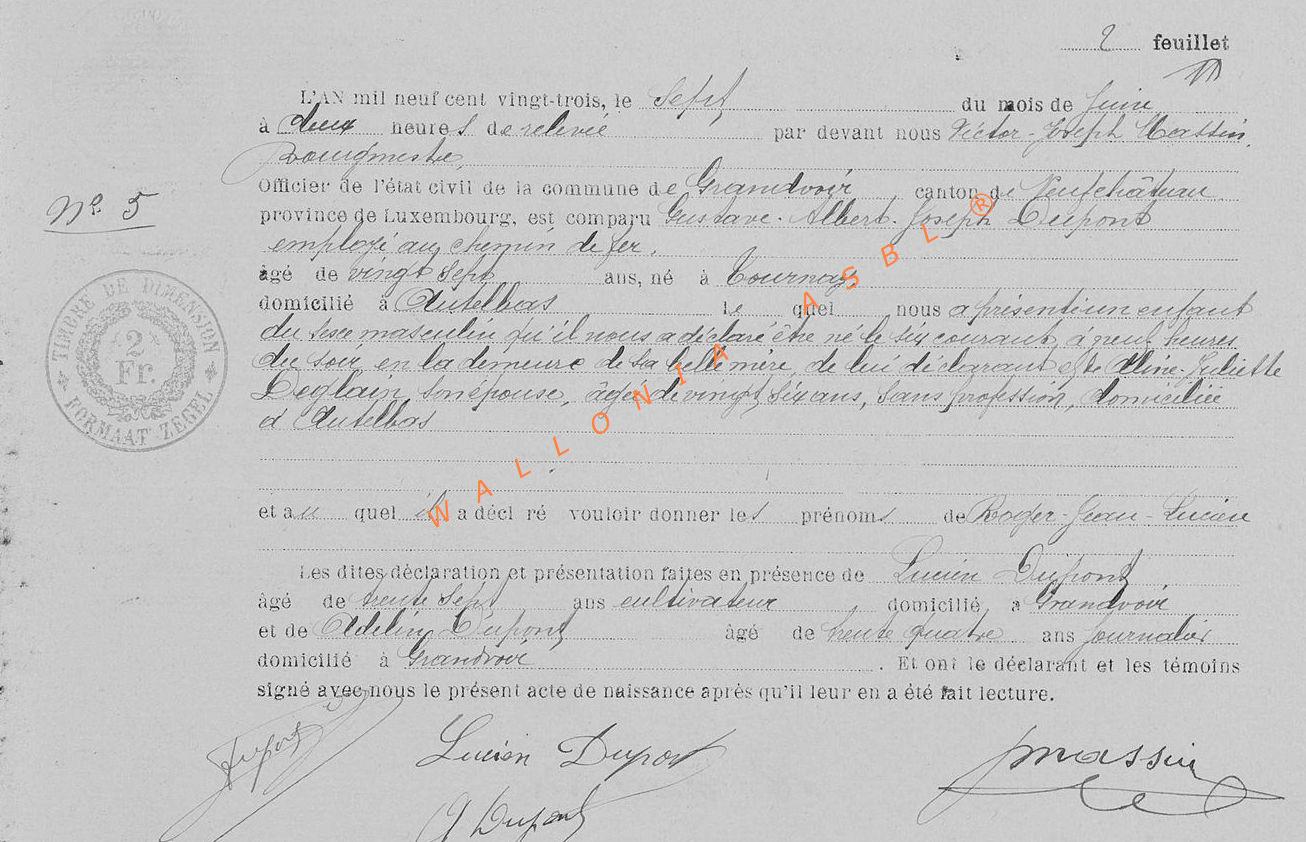 2 feuillet
L'AN mil neuf cent vingt-trois, le Sept du mois de Juin
à deux heures de relevée par devant nous Victor-Joseph Massin,
Bourgmestre,
Officier de l'état civil de la commune de Grandvoir canton de Neufchâteau
N° 5
province de Luxembourg, est comparu Gustave-Albert-Joseph Dupont
employé au chemin de fer,
âgé de vingt sept ans, né à Tournay,
domicilié à Autelbas le quel nous a présenté un enfant
du sexe masculin qu'il nous a déclaré être né le six courant, à neuf heures
du soir, en la demeure de sa belle mère, de lui déclarant et de Aline-Juliette
Deglain, son épouse, âgée de vingt six ans, sans profession, domiciliée
à Autelbas
TIMBRE DE DIMENSION
2
Fr.
FORMAAT ZEGEL
et au quel il a décl ré vouloir donner les prénoms de Roger-Jean-Lucien
Les dites déclaration et présentation faites en présence de Lucien Dupont
âgé de trente sept ans cultivateur domicilié à Grandvoir
et de Adelin Dupont âgé de trente quatre ans journalier
domicilié à Grandvoir. Et ont le déclarant et les témoins
signé avec nous le présent acte de naissance après qu'il leur en a été fait lecture.
Dupont
Lucien Dupont
Massin
A Dupont
WALLONIA ASBL ®